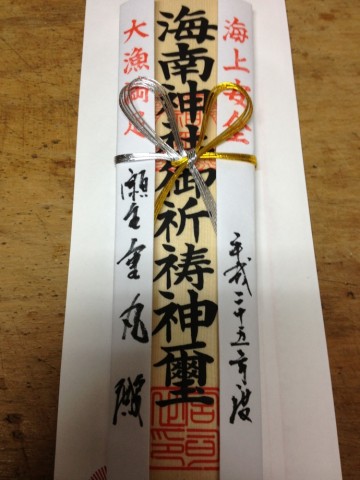 海上安全
平成二十五年度
海南神社御祈祷神璽
大漁満足
丸 殿